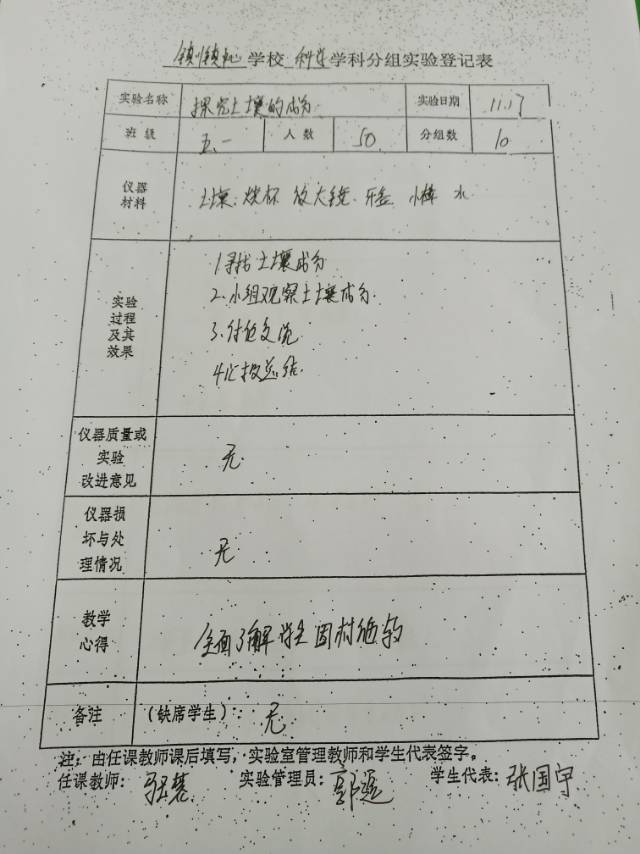 学校 科学 学科分组实验登记表
实验名称 探究土壤的成分 实验日期 11.17
班级 五.一 人数 50 分组数 10
仪器材料 土壤 烧杯 放大镜 牙签 小棒 水
实验过程及其效果
1.寻找土壤成分
2.小组观察土壤成分
3.讨论交流
4.汇报总结
仪器质量或实验改进意见 无
仪器损坏与处理情况 无
教学心得 全面了解学生因材施教
备注 (缺席学生): 无
注: 由任课教师课后填写, 实验室管理教师和学生代表签字。
任课教师: 张慧 实验管理员: 学生代表: 张国宇